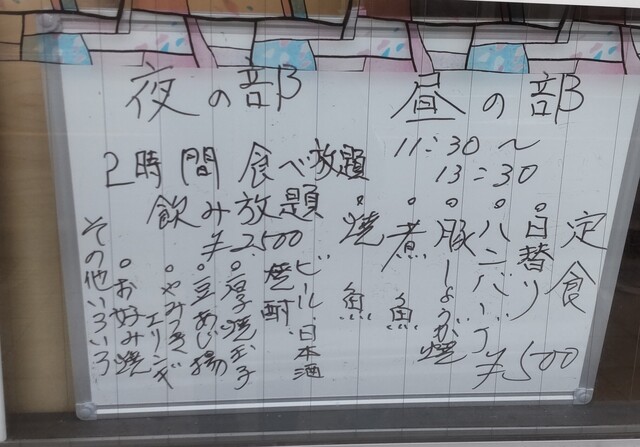 昼の部
11:30〜
13:30
定食
。日替り
。ハンバーグ
。豚しょうが焼
。煮魚
。焼魚
¥500
夜の部
2時間食べ放題
飲み放題
¥2500
ビール.日本酒
焼酎
。厚焼玉子
。豆あじ揚
。やみつきエリンギ
。お好み焼
その他いろいろ